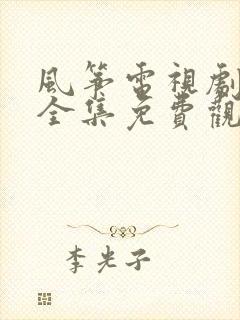 風箏電視劇
全集免費觀
李光子